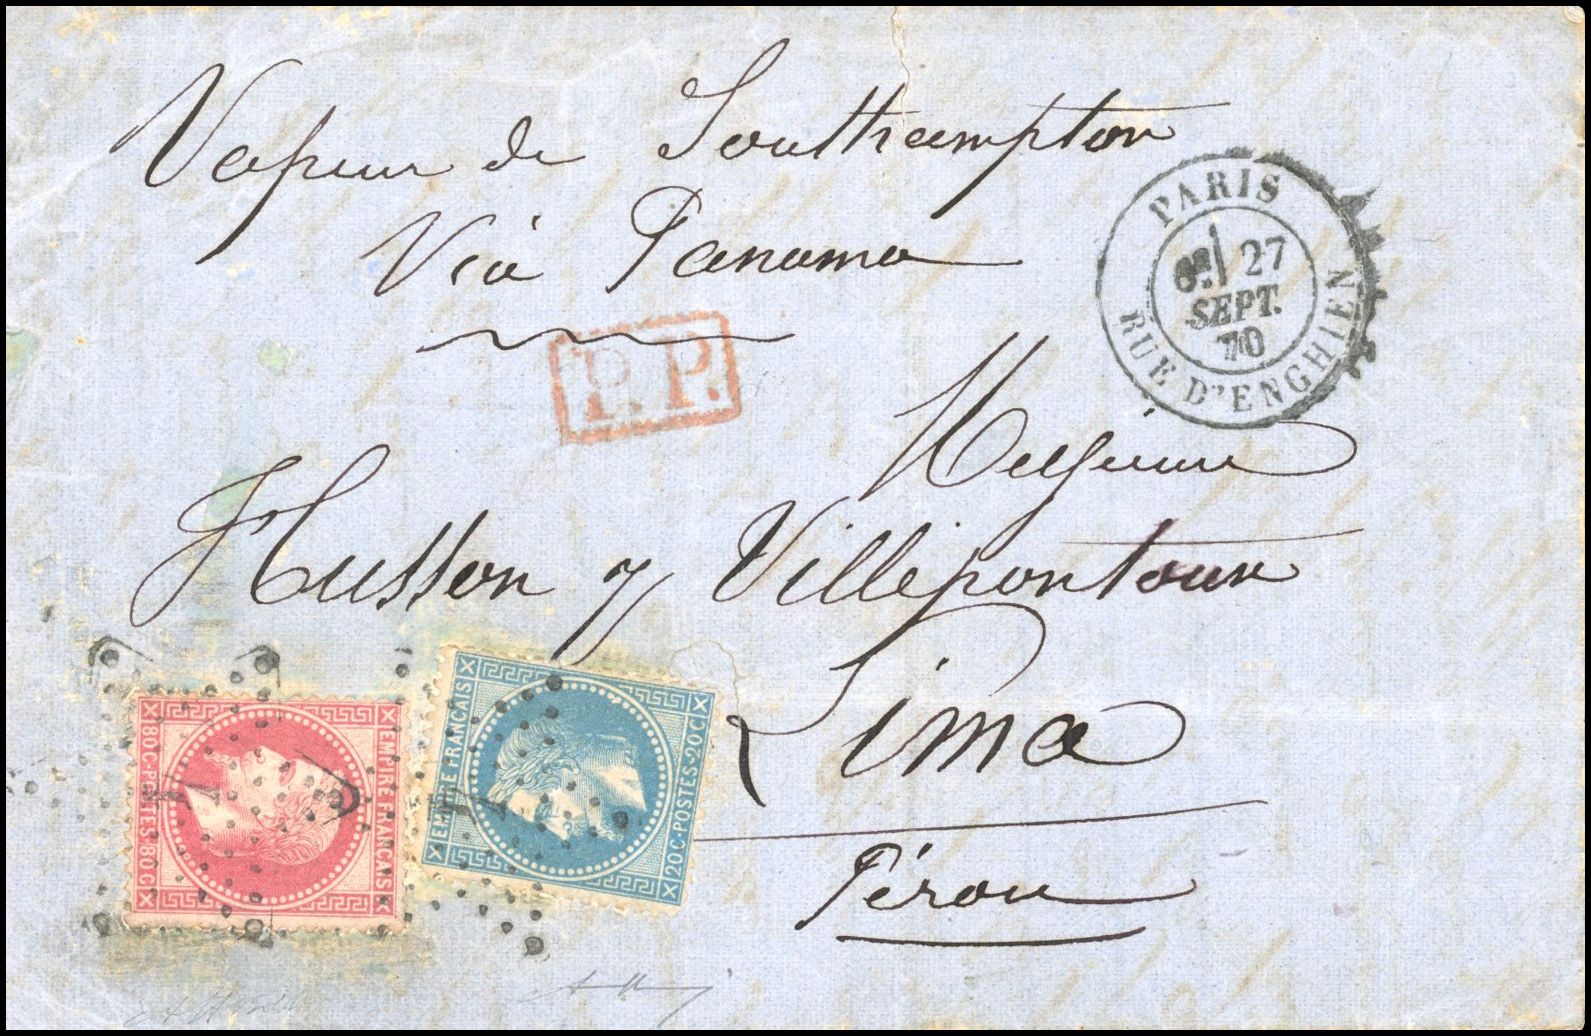 Vapeur de Southampton
Viâ Panama
PARIS
6E 27
SEPT.
70
RUE D'ENGHIEN
P.P.
Husson y Villepontoux
Lima
Pérou
EMPIRE FRANCAIS
80 C·POSTES·80 C
EMPIRE FRANCAIS
20 C·POSTES·20 C